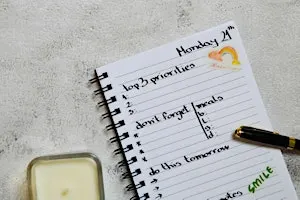 Monday 29th
top 3 priorities
1
2
3
don't forget
meals
B
L
S
D
do this tomorrow
notes
SMILE